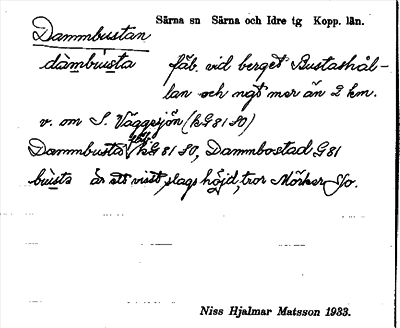 Dammbustan Särna sn Särna och Idre tg Kopp. län.
dàmbùsta fäb. vid berget Bustashål-
lan och ngt mer än 2 km.
v. om S. Väggsjön (kG 81 SO)
Dammbusta kG 81 SO, Dammbostad G 81
bùsta är ett visst slags höjd, tror Mörker Jo.
Niss Hjalmar Matsson 1933.